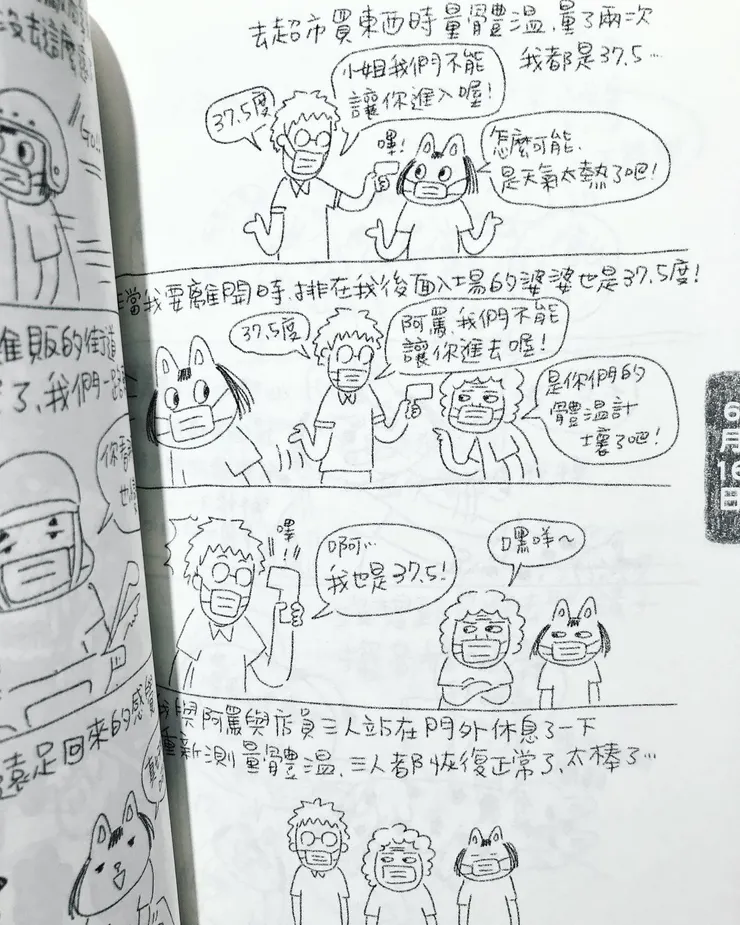 去超市買東西時量體溫,量了兩次
我都是37.5…
37.5度
小姐我們不能
讓你進入喔!
嗶!
怎麼可能.
是天氣太熱了吧!
當我要離開時,排在我後面入場的婆婆也是37.5度!
37.5度
阿罵,我們不能
讓你進去喔!
是你們的
體溫計
壞了吧!
嗶!
啊…
我也是37.5!
嘿咩~
與阿罵與店員三人站在門外休息了一下
重新測量體溫,三人都恢復正常了,太棒了…
6月16日
沒去這麼
Go!!
販的街道
了、我們一
你
遠足回來的感覺